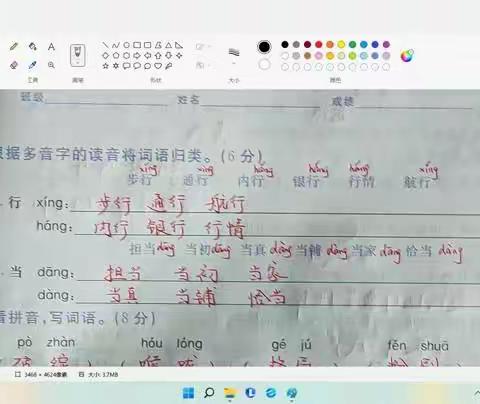 工具
画笔
形状
大小
颜色
班级 姓名 成绩
据多音字的读音将词语归类。(6分)
xíng xíng háng háng háng xíng
步行 通行 内行 银行 行情 航行
行 xíng: 步行 通行 航行
háng: 内行 银行 行情
担当dāng 当初dāng 当真dàng 当铺dàng 当家dāng 恰当dàng
当 dāng: 担当 当初 当家
dàng: 当真 当铺 恰当
看拼音,写词语。(8分)
pò zhàn hóu lóng gé jú fěn shuā
破绽 喉咙 格局 粉刷
3468 × 4624像素 大小: 3.7MB